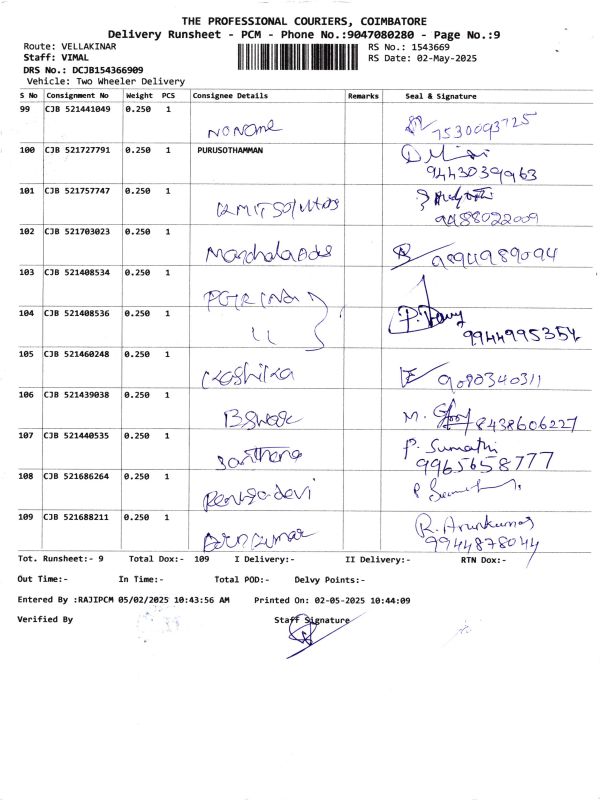 THE PROFESSIONAL COURIERS, COIMBATORE
Delivery Runsheet - PCM - Phone No.:9047080280 - Page No.:9
Route: VELLAKINAR RS No.: 1543669
Staff: VIMAL RS Date: 02-May-2025
DRS No.: DCJB154366909
Vehicle: Two Wheeler Delivery
S No Consignment No Weight PCS Consignee Details Remarks Seal & Signature
99 CJB 521441049 0.250 1
NONAME 7530093725
100 CJB 521727791 0.250 1 PURUSOTHAMMAN
9443039963
101 CJB 521757747 0.250 1
9488022009
102 CJB 521703023 0.250 1
9894989094
103 CJB 521408534 0.250 1
104 CJB 521408536 0.250 1
9944995354
105 CJB 521460248 0.250 1
Kashika 9080340311
106 CJB 521439038 0.250 1
M. 8438606227
107 CJB 521440535 0.250 1 P. Sumathi
Santhana 9965658777
108 CJB 521686264 0.250 1
Renuga devi
109 CJB 521688211 0.250 1 R. Arunkumar
Arunkumar 9944878044
Tot. Runsheet:- 9 Total Dox:- 109 I Delivery:- II Delivery:- RTN Dox:-
Out Time:- In Time:- Total POD:- Delvy Points:-
Entered By :RAJIPCM 05/02/2025 10:43:56 AM Printed On: 02-05-2025 10:44:09
Verified By Staff Signature